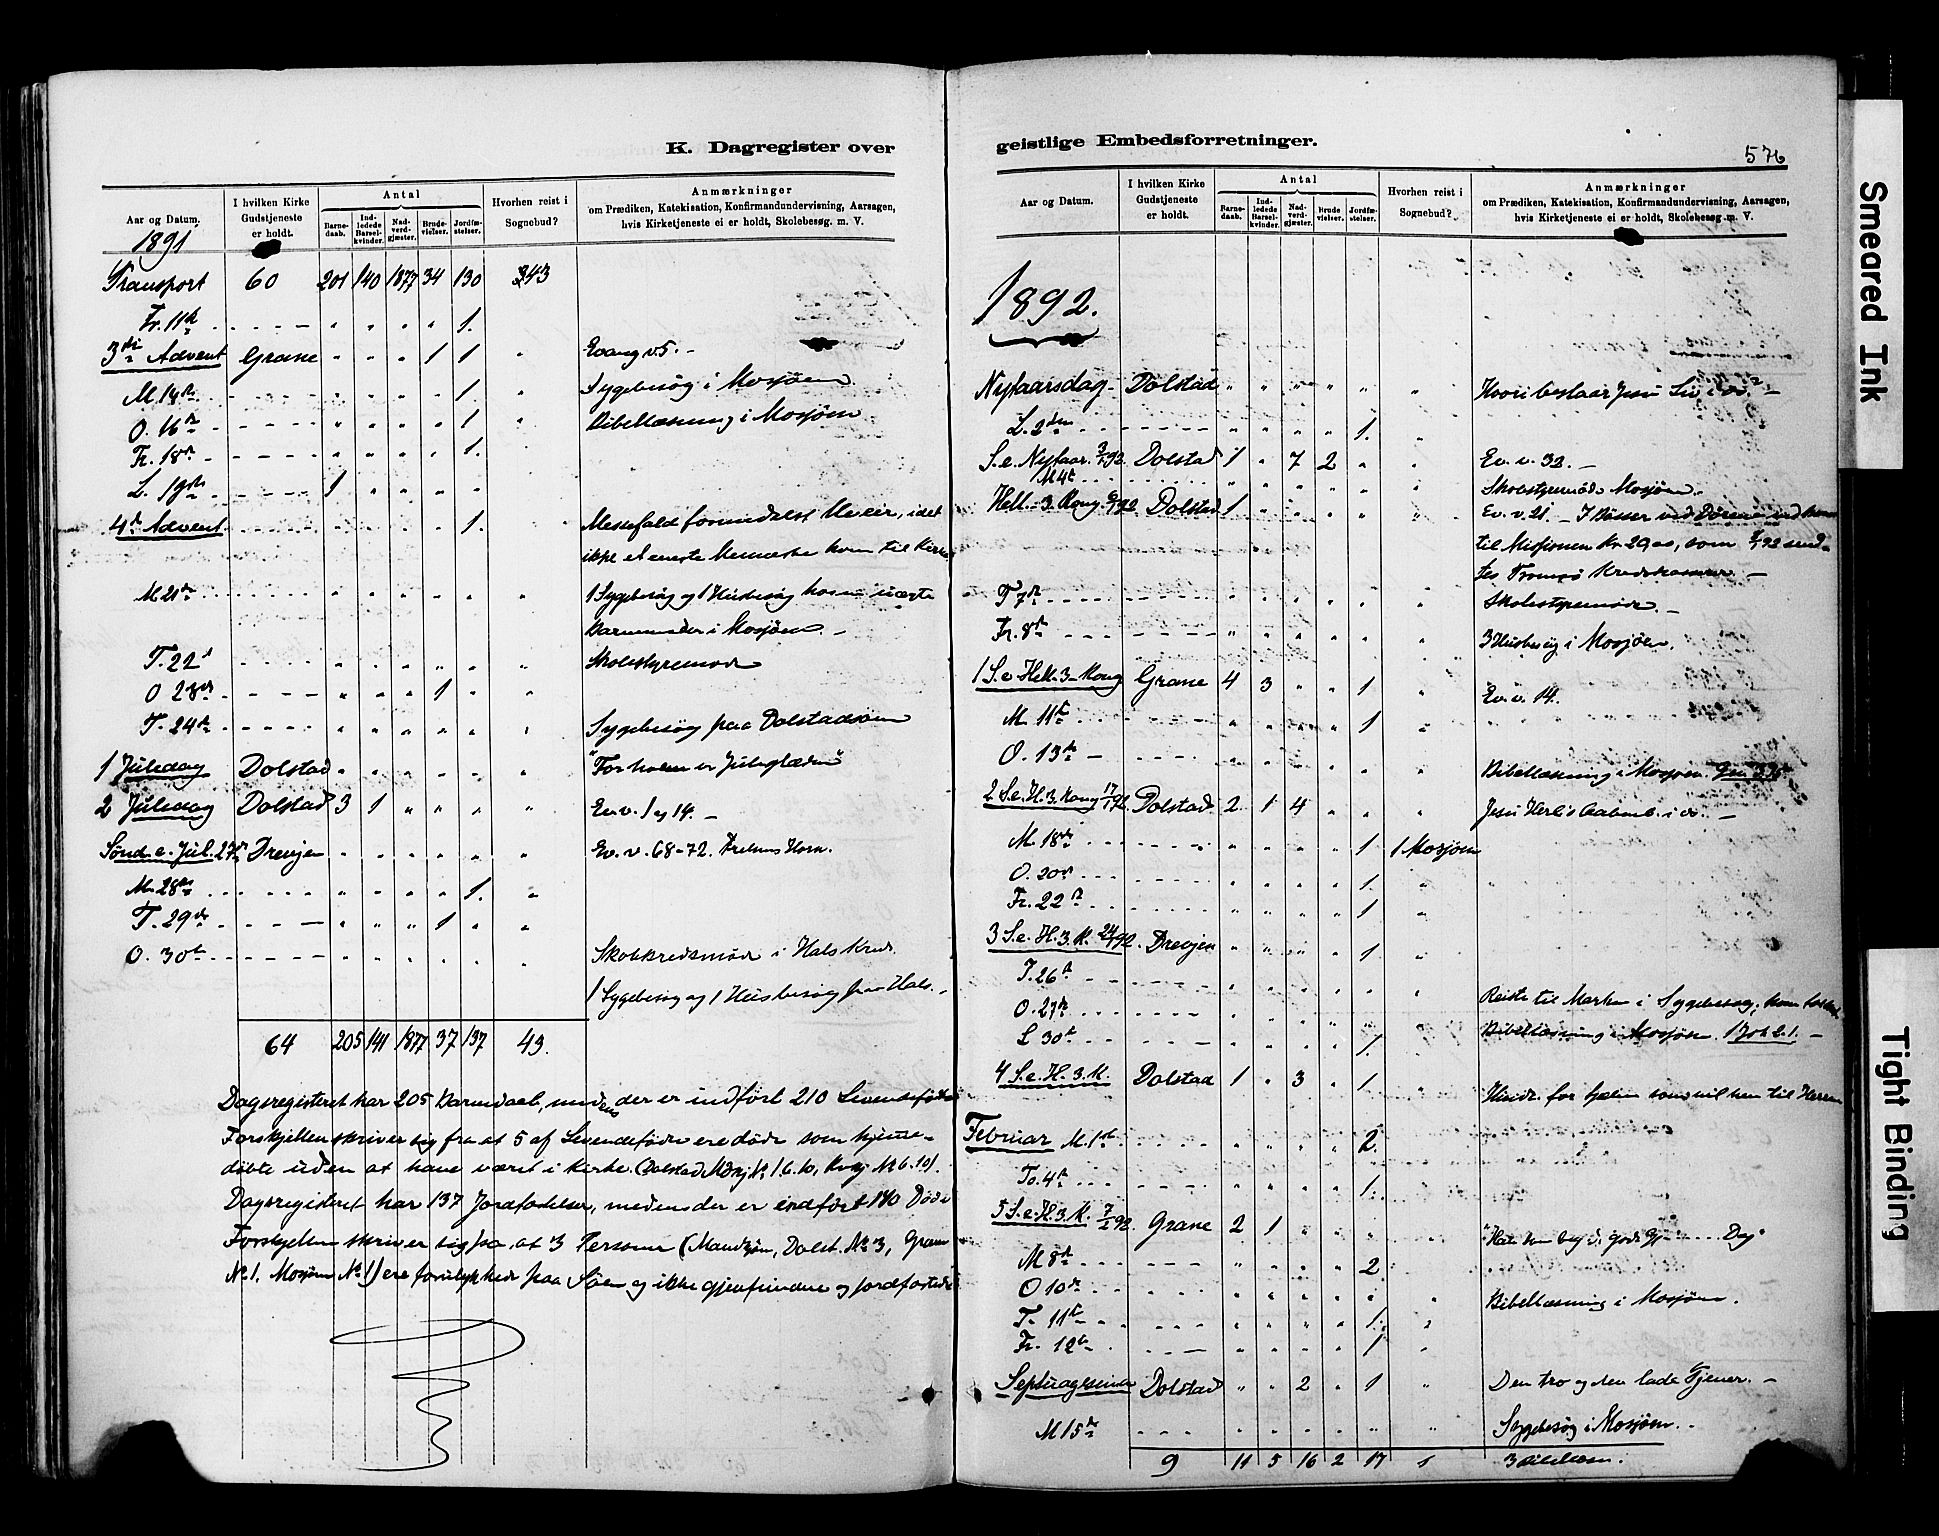 K. Dagregister over
Aar og Datum.
I hvilken Kirke Gudstjeneste er holdt.
Antal
Barnedaab.
Indledede Barselkvinder.
Nadverdgjæster.
Brudevielser.
Jordfæstelser.
Hvorhen reist i Sognebud?
Anmærkninger
om Prædiken, Katekisation, Konfirmandundervisning, Aarsagen,
hvis Kirketjeneste ei er holdt, Skolebesøg. m. V.
1891
Transport 60 201 140 1877 34 130 43
Fr. 11te 1.
3die Advent Grane 1 1 Evang v. 5.
M. 14de 1 Sygebesøg i Mosjøen
O. 16de 1 Bibellæsning i Mosjøen
Fr. 18de 1.
L. 19de 1
4de Advent 1. Messefald formedelst Uveir, idet
ikke et eneste Menneske kom til Kirke
M 21de 1 Sygebesøg og 1 Husbesøg hos
i Mosjøen.
T. 22de Skolestyremøde
O 23de 1
T. 24de Sygebesøg paa Dolstadøen
1 Juledag Dolstad "Forholdt er Juleglæden"
2 Juledag Dolstad 3 1 Ev. v. 1 og 14.
Sønd. e. Jul. 27de Drevjen Ev. v. 68-72. Frelsens Horn.
M. 28de 1.
T. 29de 1
O. 30te Skolekredsmøde i Hals Kreds.
1 Sygebesøg og 1 Husbesøg paa Hals.
64 205 141 1877 37 137 43.
Dagsregisteret har 205 Barnedaab, medens der er indført 210 Levendefødte
Forskjellen skriver sig fra at 5 af Levendefødte ere døde som hjemme-
døbte uden at have været i Kirke. (Dolstad
Dagsregisteret har 137 Jordfæstelser, medens der er indført 140 Døde
Forskjellen skriver sig fra, at 3 Personer (Mandkjøn, Dolst. No 3, Grane
No 1. Mosjøen No 1) ere forulykkede paa Søen og ikke gjenfundne og jordfæstede
geistlige Embedsforretninger.
576
Aar og Datum.
I hvilken Kirke Gudstjeneste er holdt.
Antal
Barnedaab.
Indledede Barselkvinder.
Nadverdgjæster.
Brudevielser.
Jordfæstelser.
Hvorhen reist i Sognebud?
Anmærkninger
om Prædiken, Katekisation, Konfirmandundervisning, Aarsagen,
hvis Kirketjeneste ei er holdt, Skolebesøg m. V.
1892.
Nytaarsdag Dolstad Hvori bestaar Jesu
L. 2den 1.
S. e. Nytaar. 3/1 92. Dolstad 1 7 2 Ev. v. 32.
M 4de Skolestyremøde Mosjøen.
Hell. 3 Kong 6/1 92 Dolstad 1 Ev. v. 21. - I Bøsser ved Dørene
til Missionen Kr 29 00, som 7/1 92 send-
tes Tromsø Kredskasserer
T 7de Skolestyremøde.
Fr. 8de 3 Husbesøg i Mosjøen.
1 S. e Hell. 3 Kong Grane 4 3 1 Ev. v. 14.
M. 11te 1
O. 13de Bibellæsning i Mosjøen
2 S. e. H. 3. Kong 17/1 92. Dolstad 2 1 4 Jesu Herl
M. 18de 1 1 Mosjøen
O. 20de 1.
Fr. 22de 1
3 S. e. H. 3. K. 24/1 92. Drevjen 1
T. 26de Reiste til Marken i Sygebesøg;
O. 27de Bibellæsning i Mosjøen. 1 Joh 2.1.
L 30te 1.
4 S. e. H. 3. K. Dolstad 1 3 1. for hvem som vil hen til Herren
Februar M. 1ste 2.
To. 4de 1.
5 S. e. H. 3. K. 7/2 92. Grane 2 1
M 8de 2
O 10de Bibellæsning i Mosjøen.
T. 11te 1.
Fr. 12te 1
Septuagesima Dolstad 2 1 Den tro og den lade Tjener.
M 15de Sygebesøg i Mosjøen.
9 11 5 16 2 17 1 3 Bibellæsn.
Smeared Ink
Tight Binding